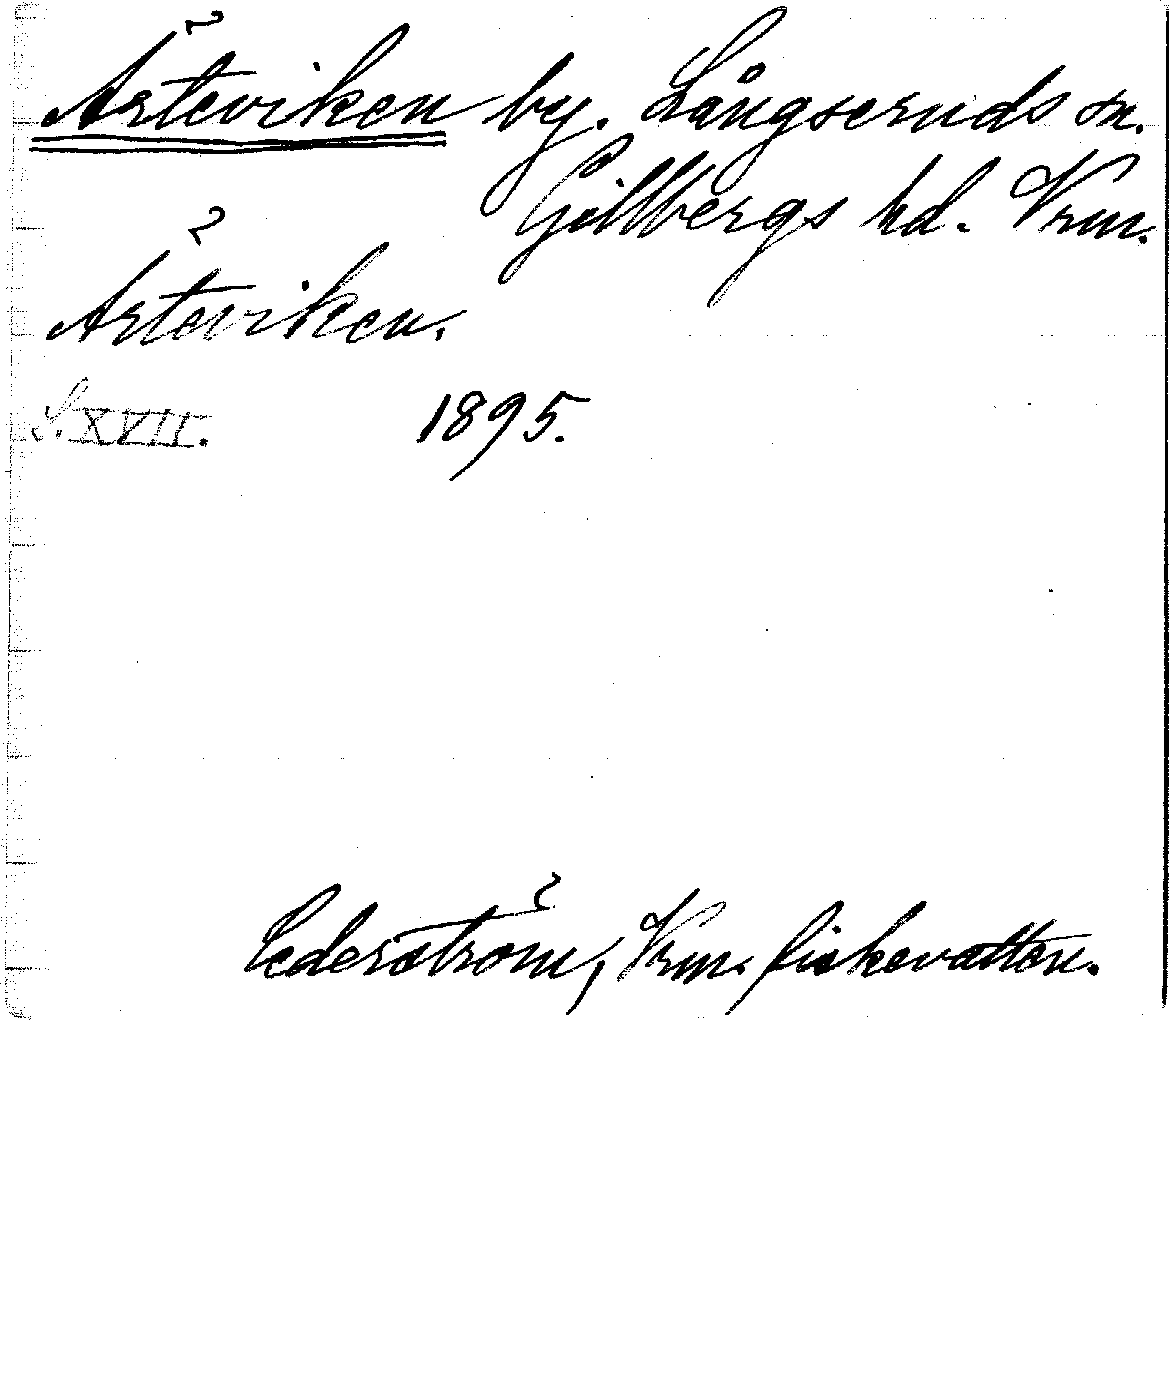 Ärteviken by. Långseruds sn.
Gillbergs hd. Vrm.
Ärteviken.
S. XVII. 1895.
Cederström, Vrm. fiskevatten.